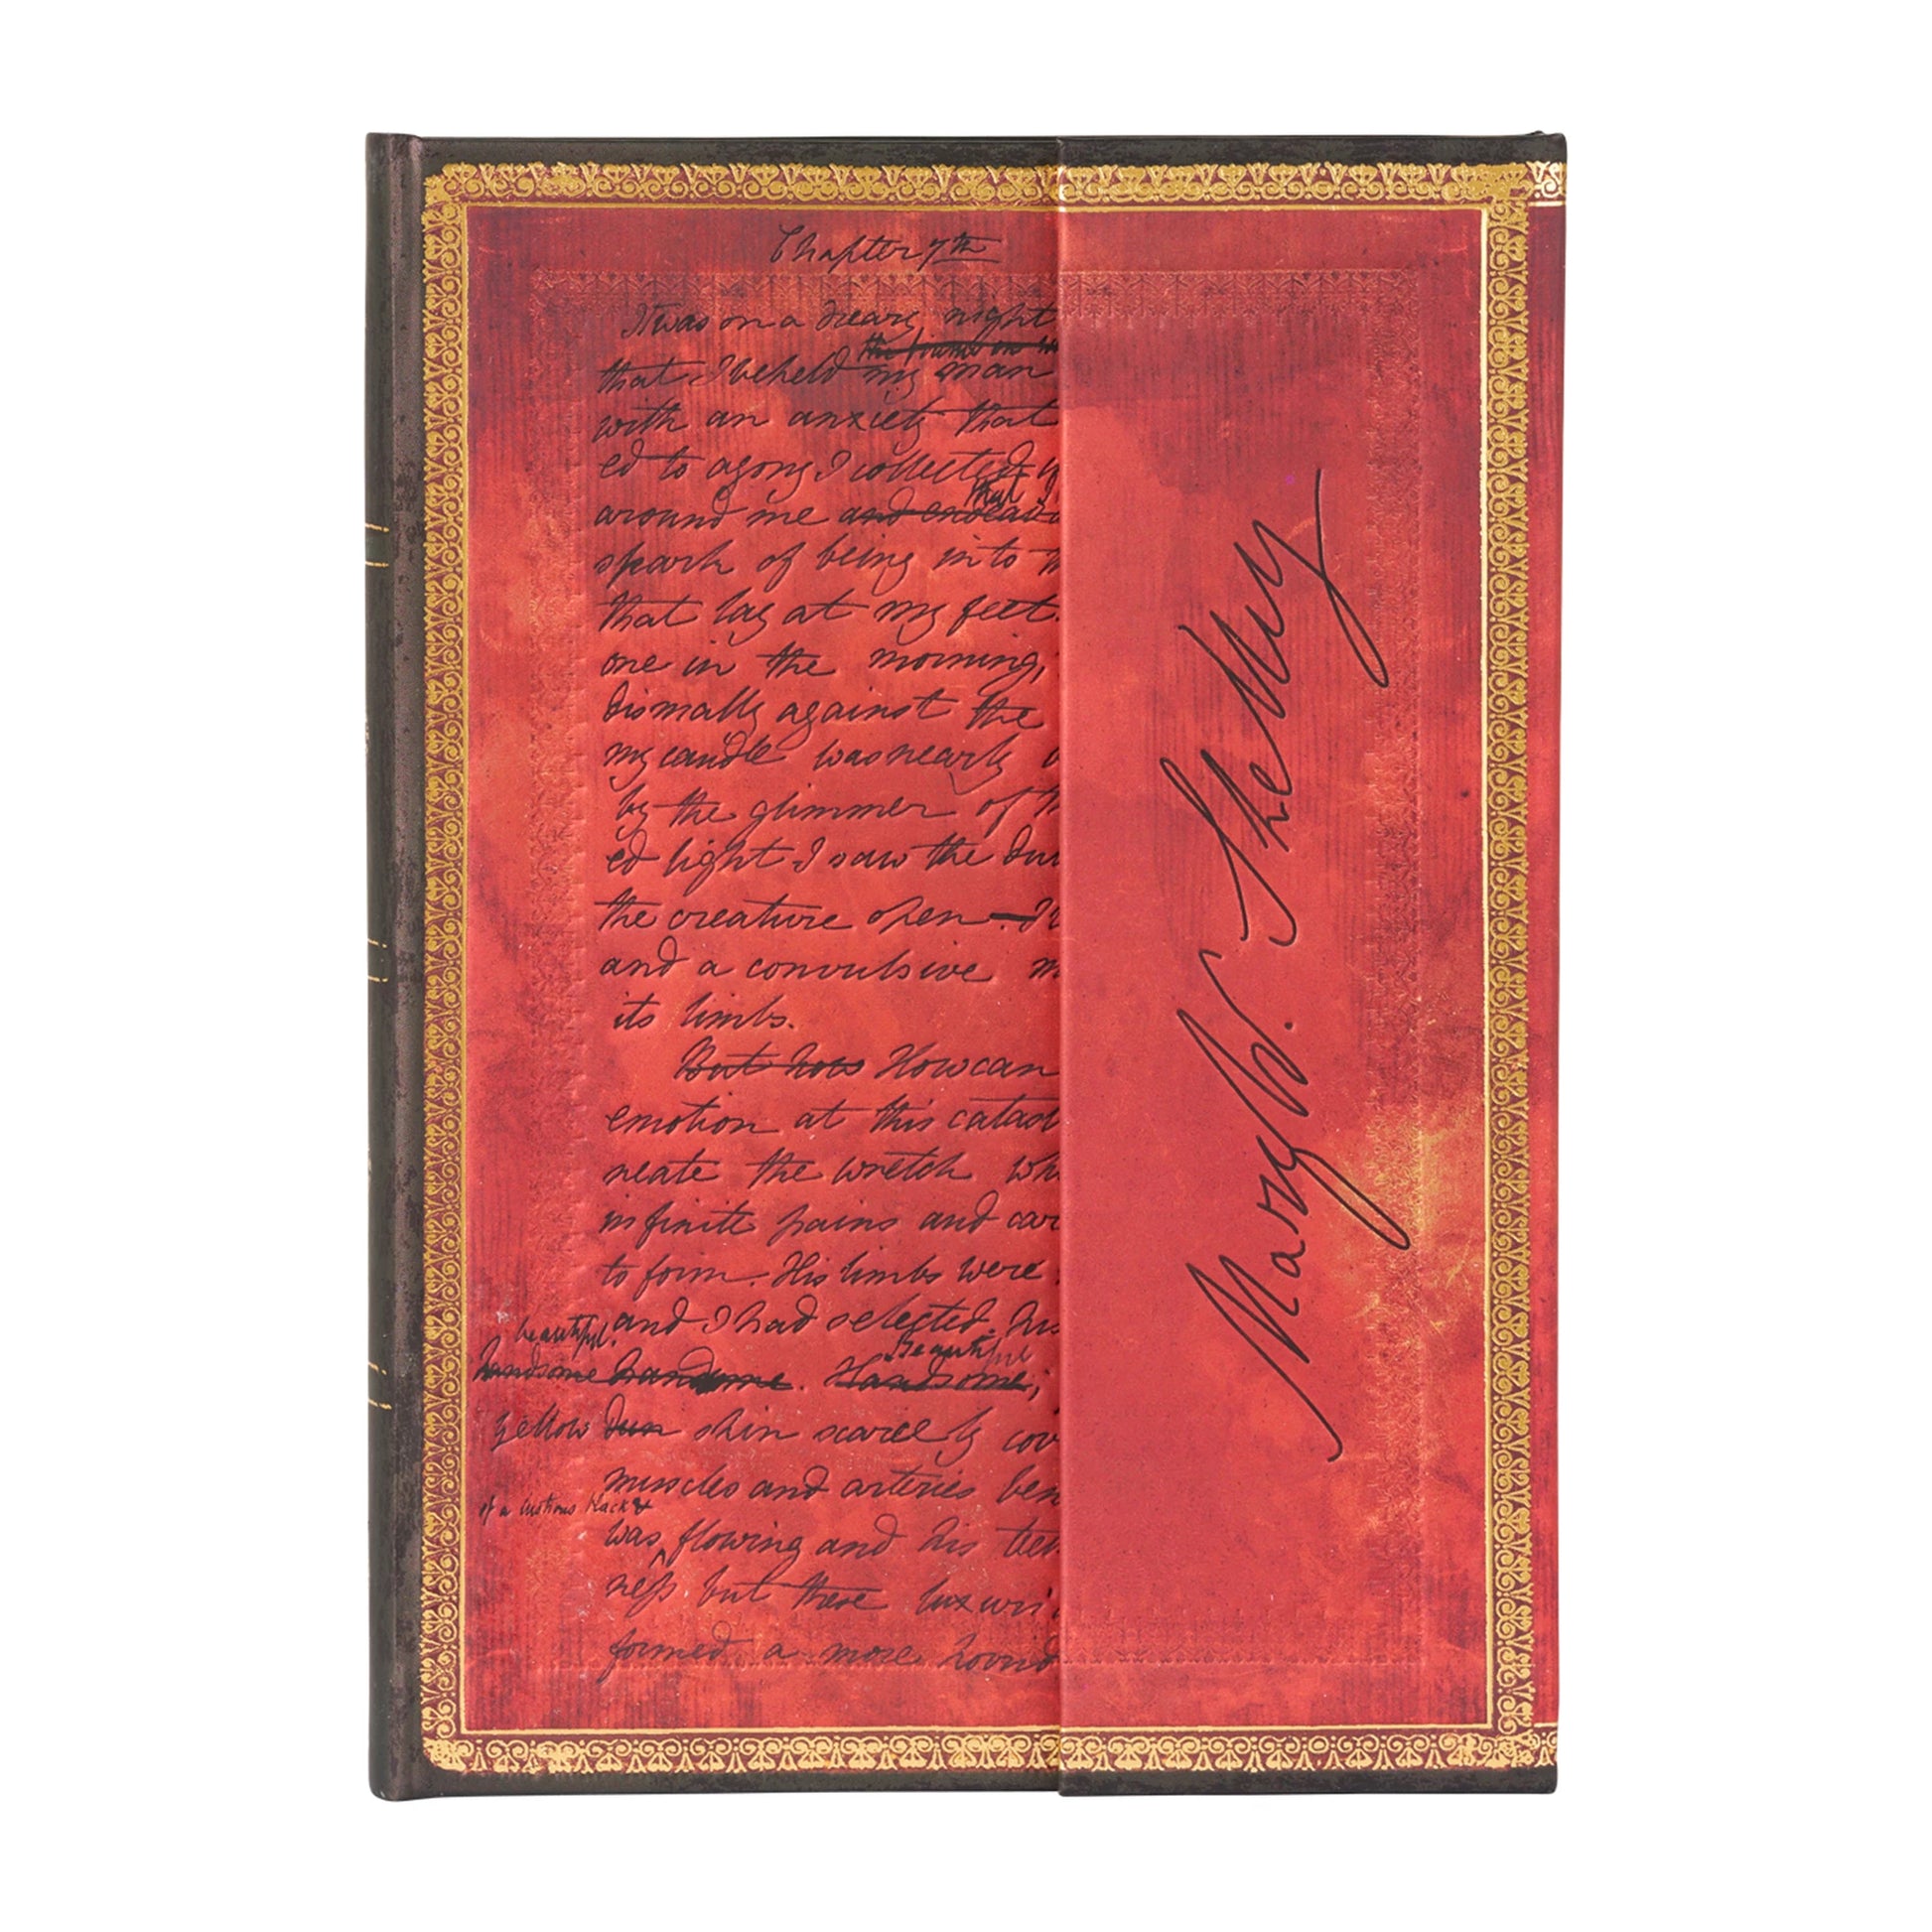 Chapter 7th
It was on a dreary night
the frame on
that I beheld my man
with an anxiety that
ed to agony I collected
that I
around me and endeavo
spark of being into th
that lay at my feet.
one in the morning,
dismally against the
my candle was nearly
by the glimmer of th
ed light I saw the dul
the creature open — It
and a convulsive m
its limbs.
But how How can
emotion at this catast
neate the wretch wh
infinite pains and car
to form. His limbs were
and I had selected his
beautiful. Beautiful
handsome handsome. Handsome;
yellow dun skin scarcely cov
muscles and arteries ben
of a lustrous black &
was flowing and his teet
ness but these luxuri
formed a more horrid
Mary W. Shelley